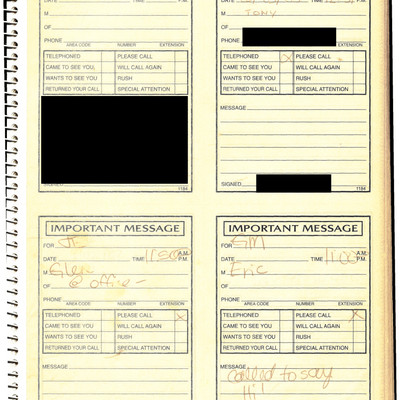 DATE TIME DATE TIME P.M.
M M TONY
OF OF
PHONE PHONE
AREA CODE NUMBER EXTENSION AREA CODE NUMBER EXTENSION
TELEPHONED PLEASE CALL TELEPHONED X PLEASE CALL
CAME TO SEE YOU, WILL CALL AGAIN CAME TO SEE YOU WILL CALL AGAIN
WANTS TO SEE YOU RUSH WANTS TO SEE YOU RUSH
RETURNED YOUR CALL SPECIAL ATTENTION RETURNED YOUR CALL SPECIAL ATTENTION
MESSAGE
SIGNED SIGNED
1184 1184
IMPORTANT MESSAGE IMPORTANT MESSAGE
FOR FOR GM
DATE TIME A.M. P.M. DATE TIME 11:00 A.M. P.M.
M Glen M Eric
OF @ office - OF
PHONE PHONE
AREA CODE NUMBER EXTENSION AREA CODE NUMBER EXTENSION
TELEPHONED PLEASE CALL X TELEPHONED PLEASE CALL X
CAME TO SEE YOU WILL CALL AGAIN CAME TO SEE YOU WILL CALL AGAIN
WANTS TO SEE YOU RUSH WANTS TO SEE YOU RUSH
RETURNED YOUR CALL SPECIAL ATTENTION RETURNED YOUR CALL SPECIAL ATTENTION
MESSAGE MESSAGE
called to say
Hi!